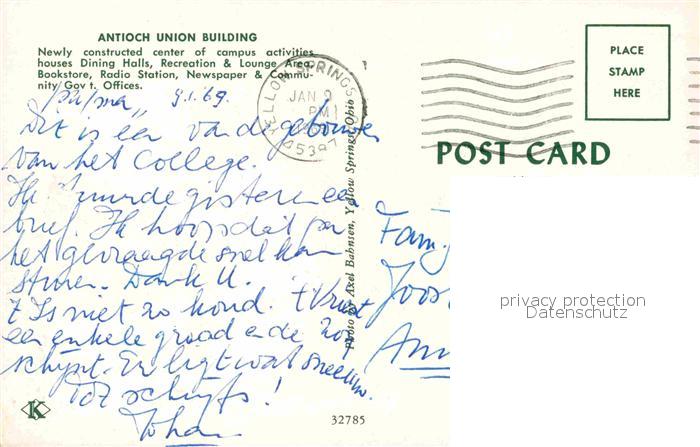 ANTIOCH UNION BUILDING
Newly constructed center of campus activities
houses Dining Halls, Recreation & Lounge Area,
Bookstore, Radio Station, Newspaper & Commu-
nity Gov't. Offices.
pa/ma,, 9.1.69.
Dit is een van de gebouwen
van het College.
Ik stuurde gisteren een
brief. Ik hoop dat pa
het gevraagde snel kan
sturen. Dank U.
't Is niet zo koud. 't Vriest
een enkele graad en de zon
schijnt. Er ligt wat sneeuw.
Tot schrijfs!
Johan
YELLOW SPRINGS
JAN 9
PM
45387
Photo by Axel Bahnsen, Yellow Springs, Ohio
PLACE
STAMP
HERE
POST CARD
Fam.
Joos
Am
privacy protection
Datenschutz
K
32785